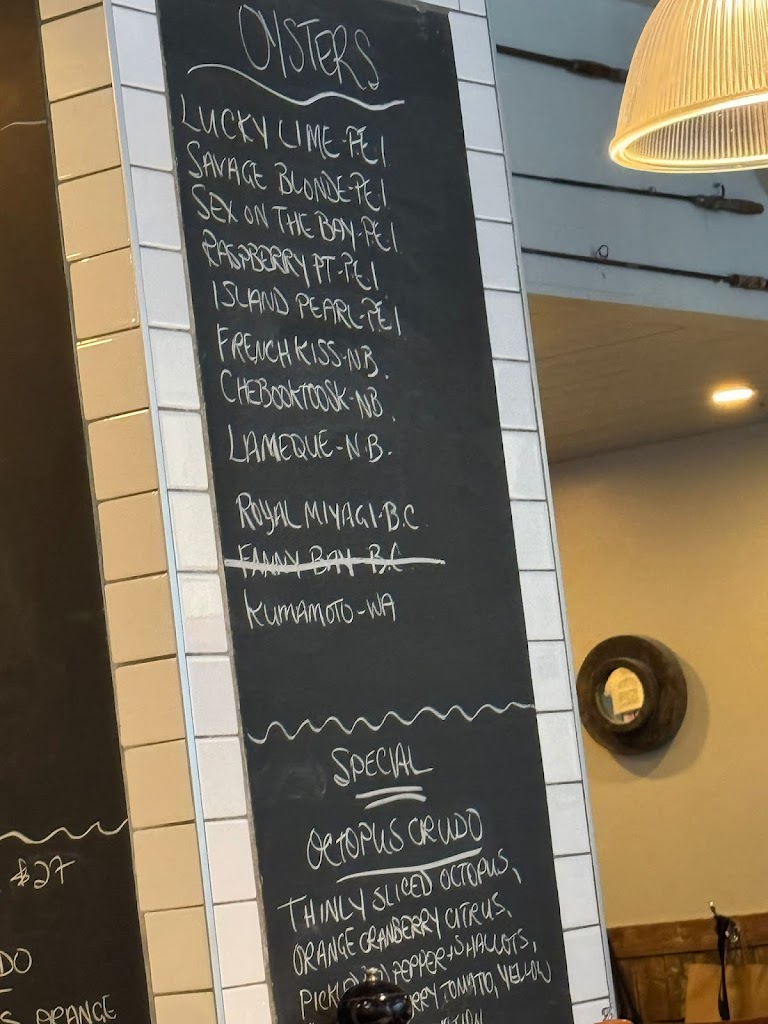 OYSTERS
LUCKY LIME-PEI
SAVAGE BLONDE-PEI
SEX ON THE BAY-PEI
RASPBERRY PT-PEI
ISLAND PEARL-PEI
FRENCH KISS-NB.
CHEBOOKTOOSK-NB.
LAMEQUE-N.B.
ROYAL MIYAGI-B.C
FANNY BAY B.C
KUMAMOTO-WA
SPECIAL
OCTOPUS CRUDO
THINLY SLICED OCTOPUS,
ORANGE CRANBERRY CITRUS,
PEPPER+SHALLOTS,
TOMATO, YELLOW
$27
ORANGE